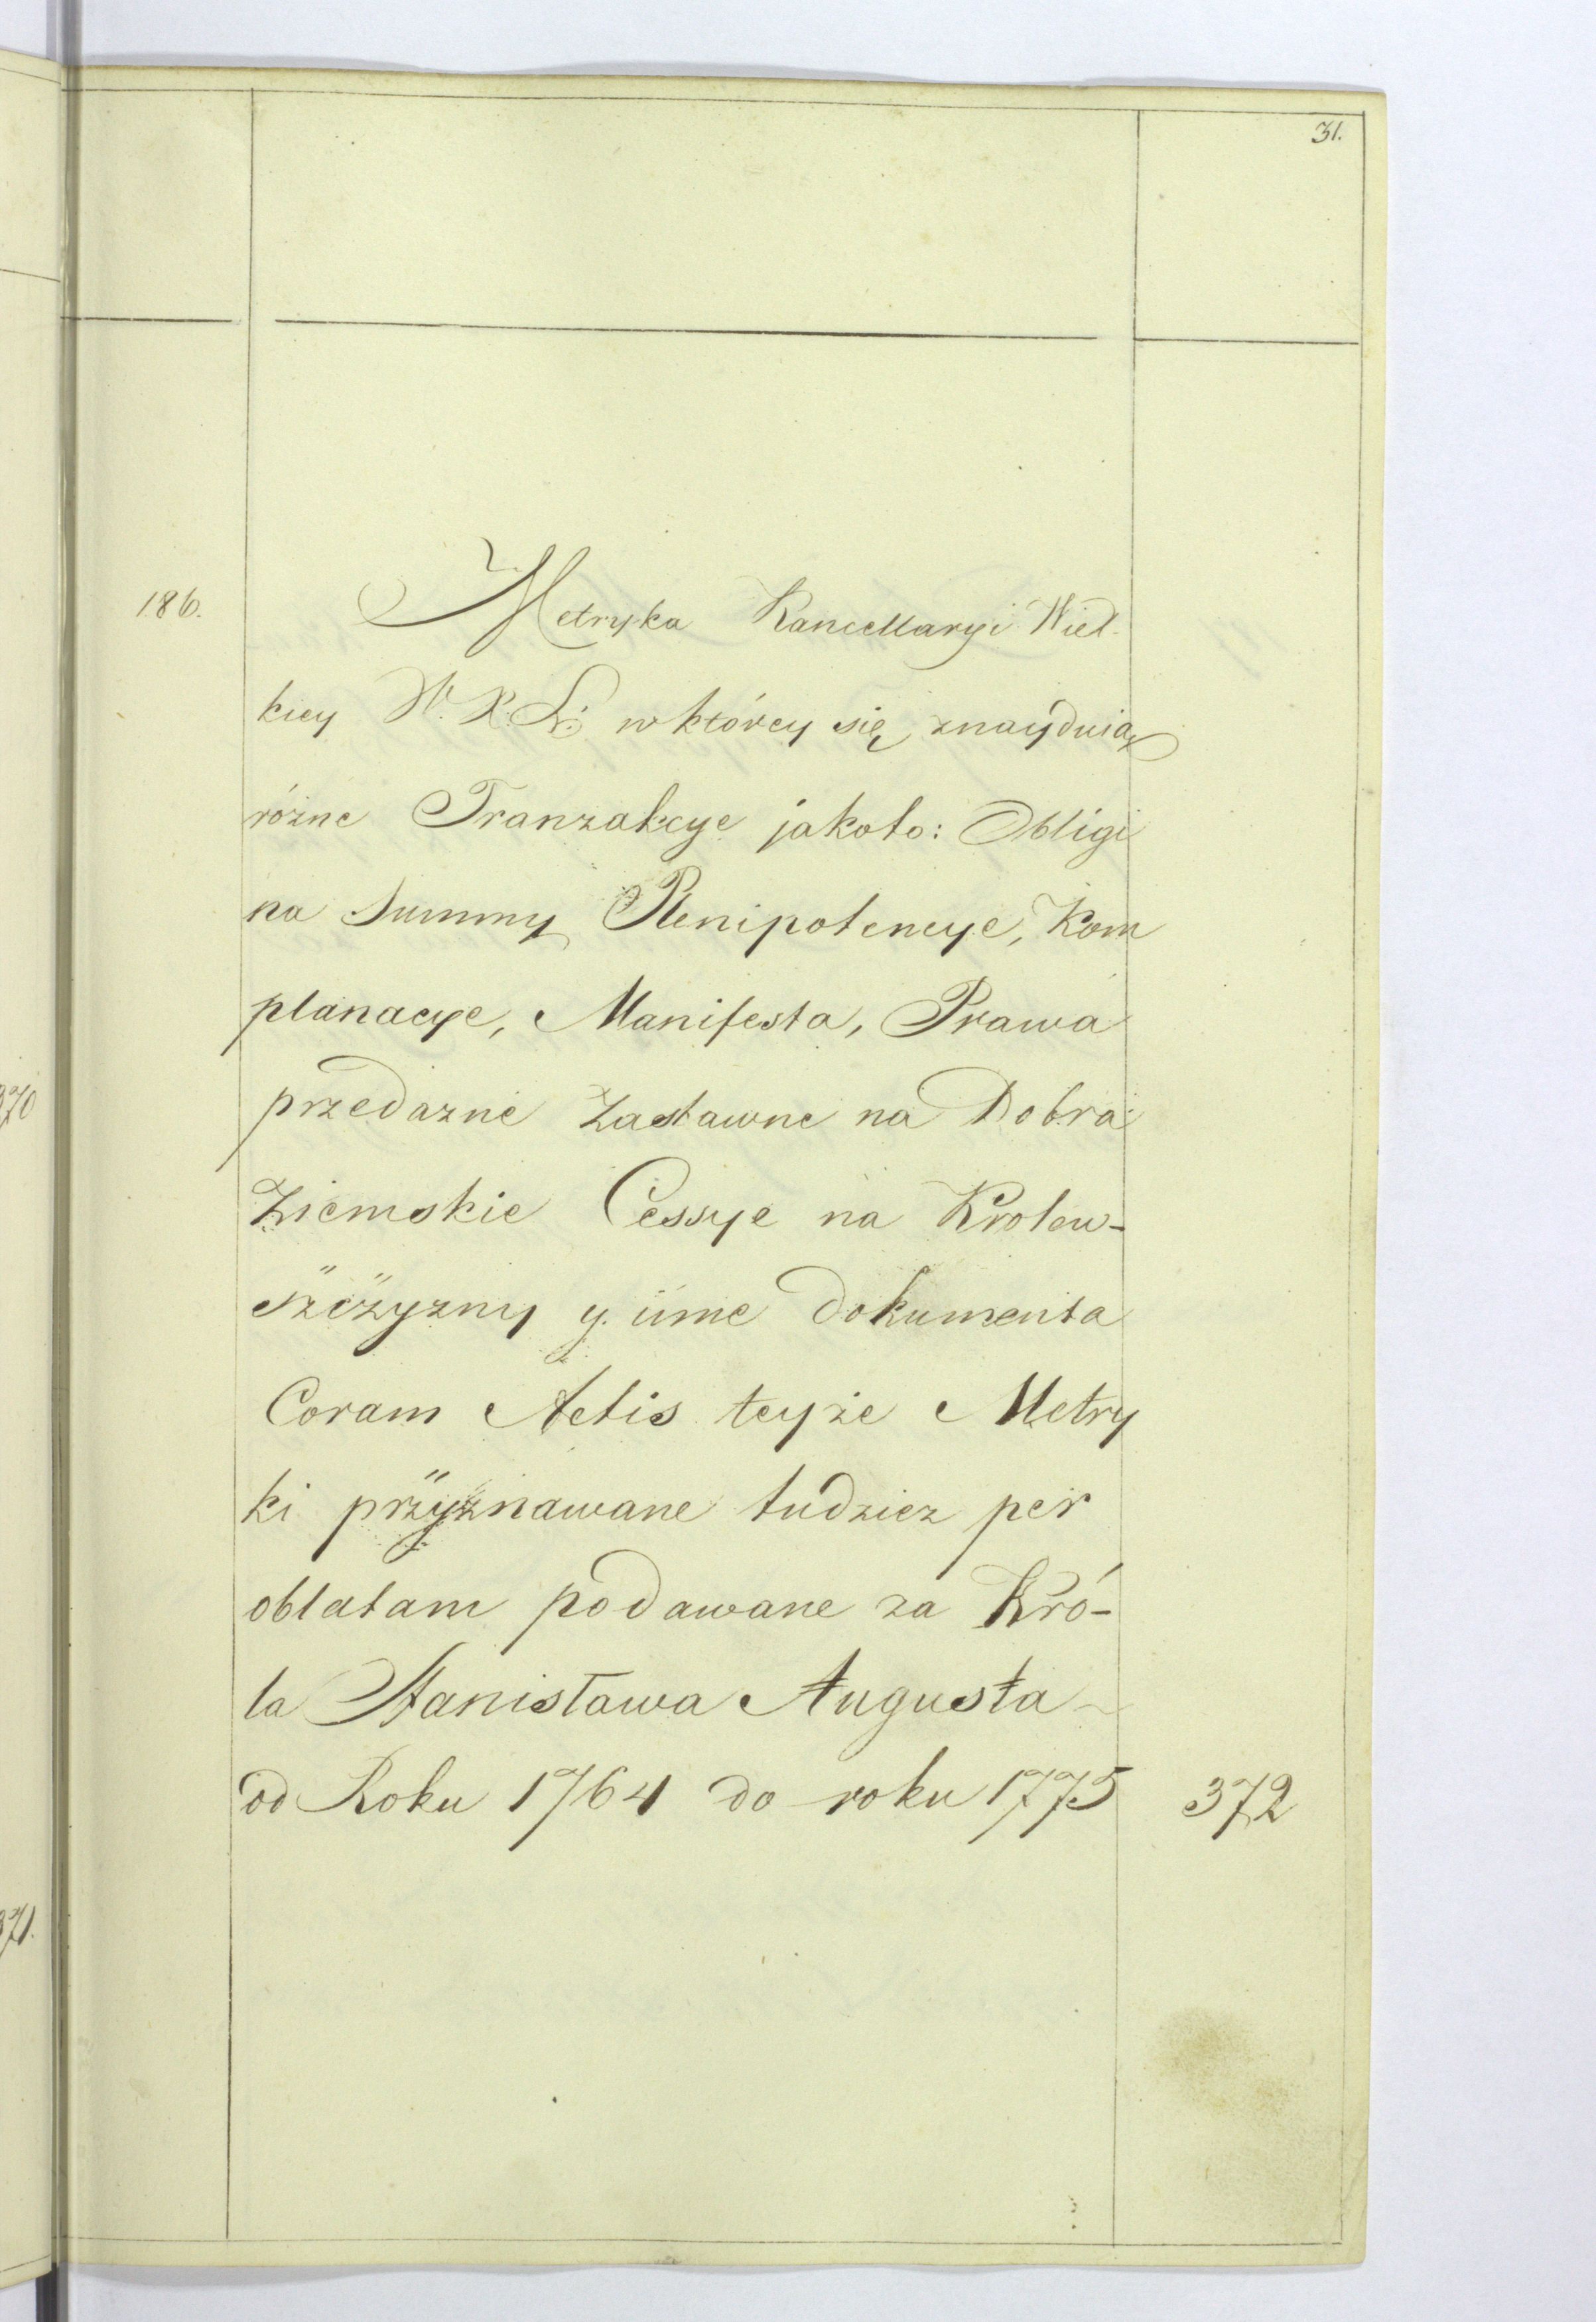 31.
186. Metryka Kancellaryi Wiel-
kiey W. X. L: w którey się znayduią
różne Tranzakcye jakoto: Obligi
na Summy Plenipotencye, Kom
planacye, Manifesta, Prawa
przedazne Zastawne na Dobra
Ziemskie Cessye na Krolew-
szczyzny y. iune Dokumenta
Coram Actis teyże Metry
ki przyznawane tudziez per
oblatam podawane za Kró-
la Stanisława Augusta
od Roku 1764 do roku 1775 372
370
371.